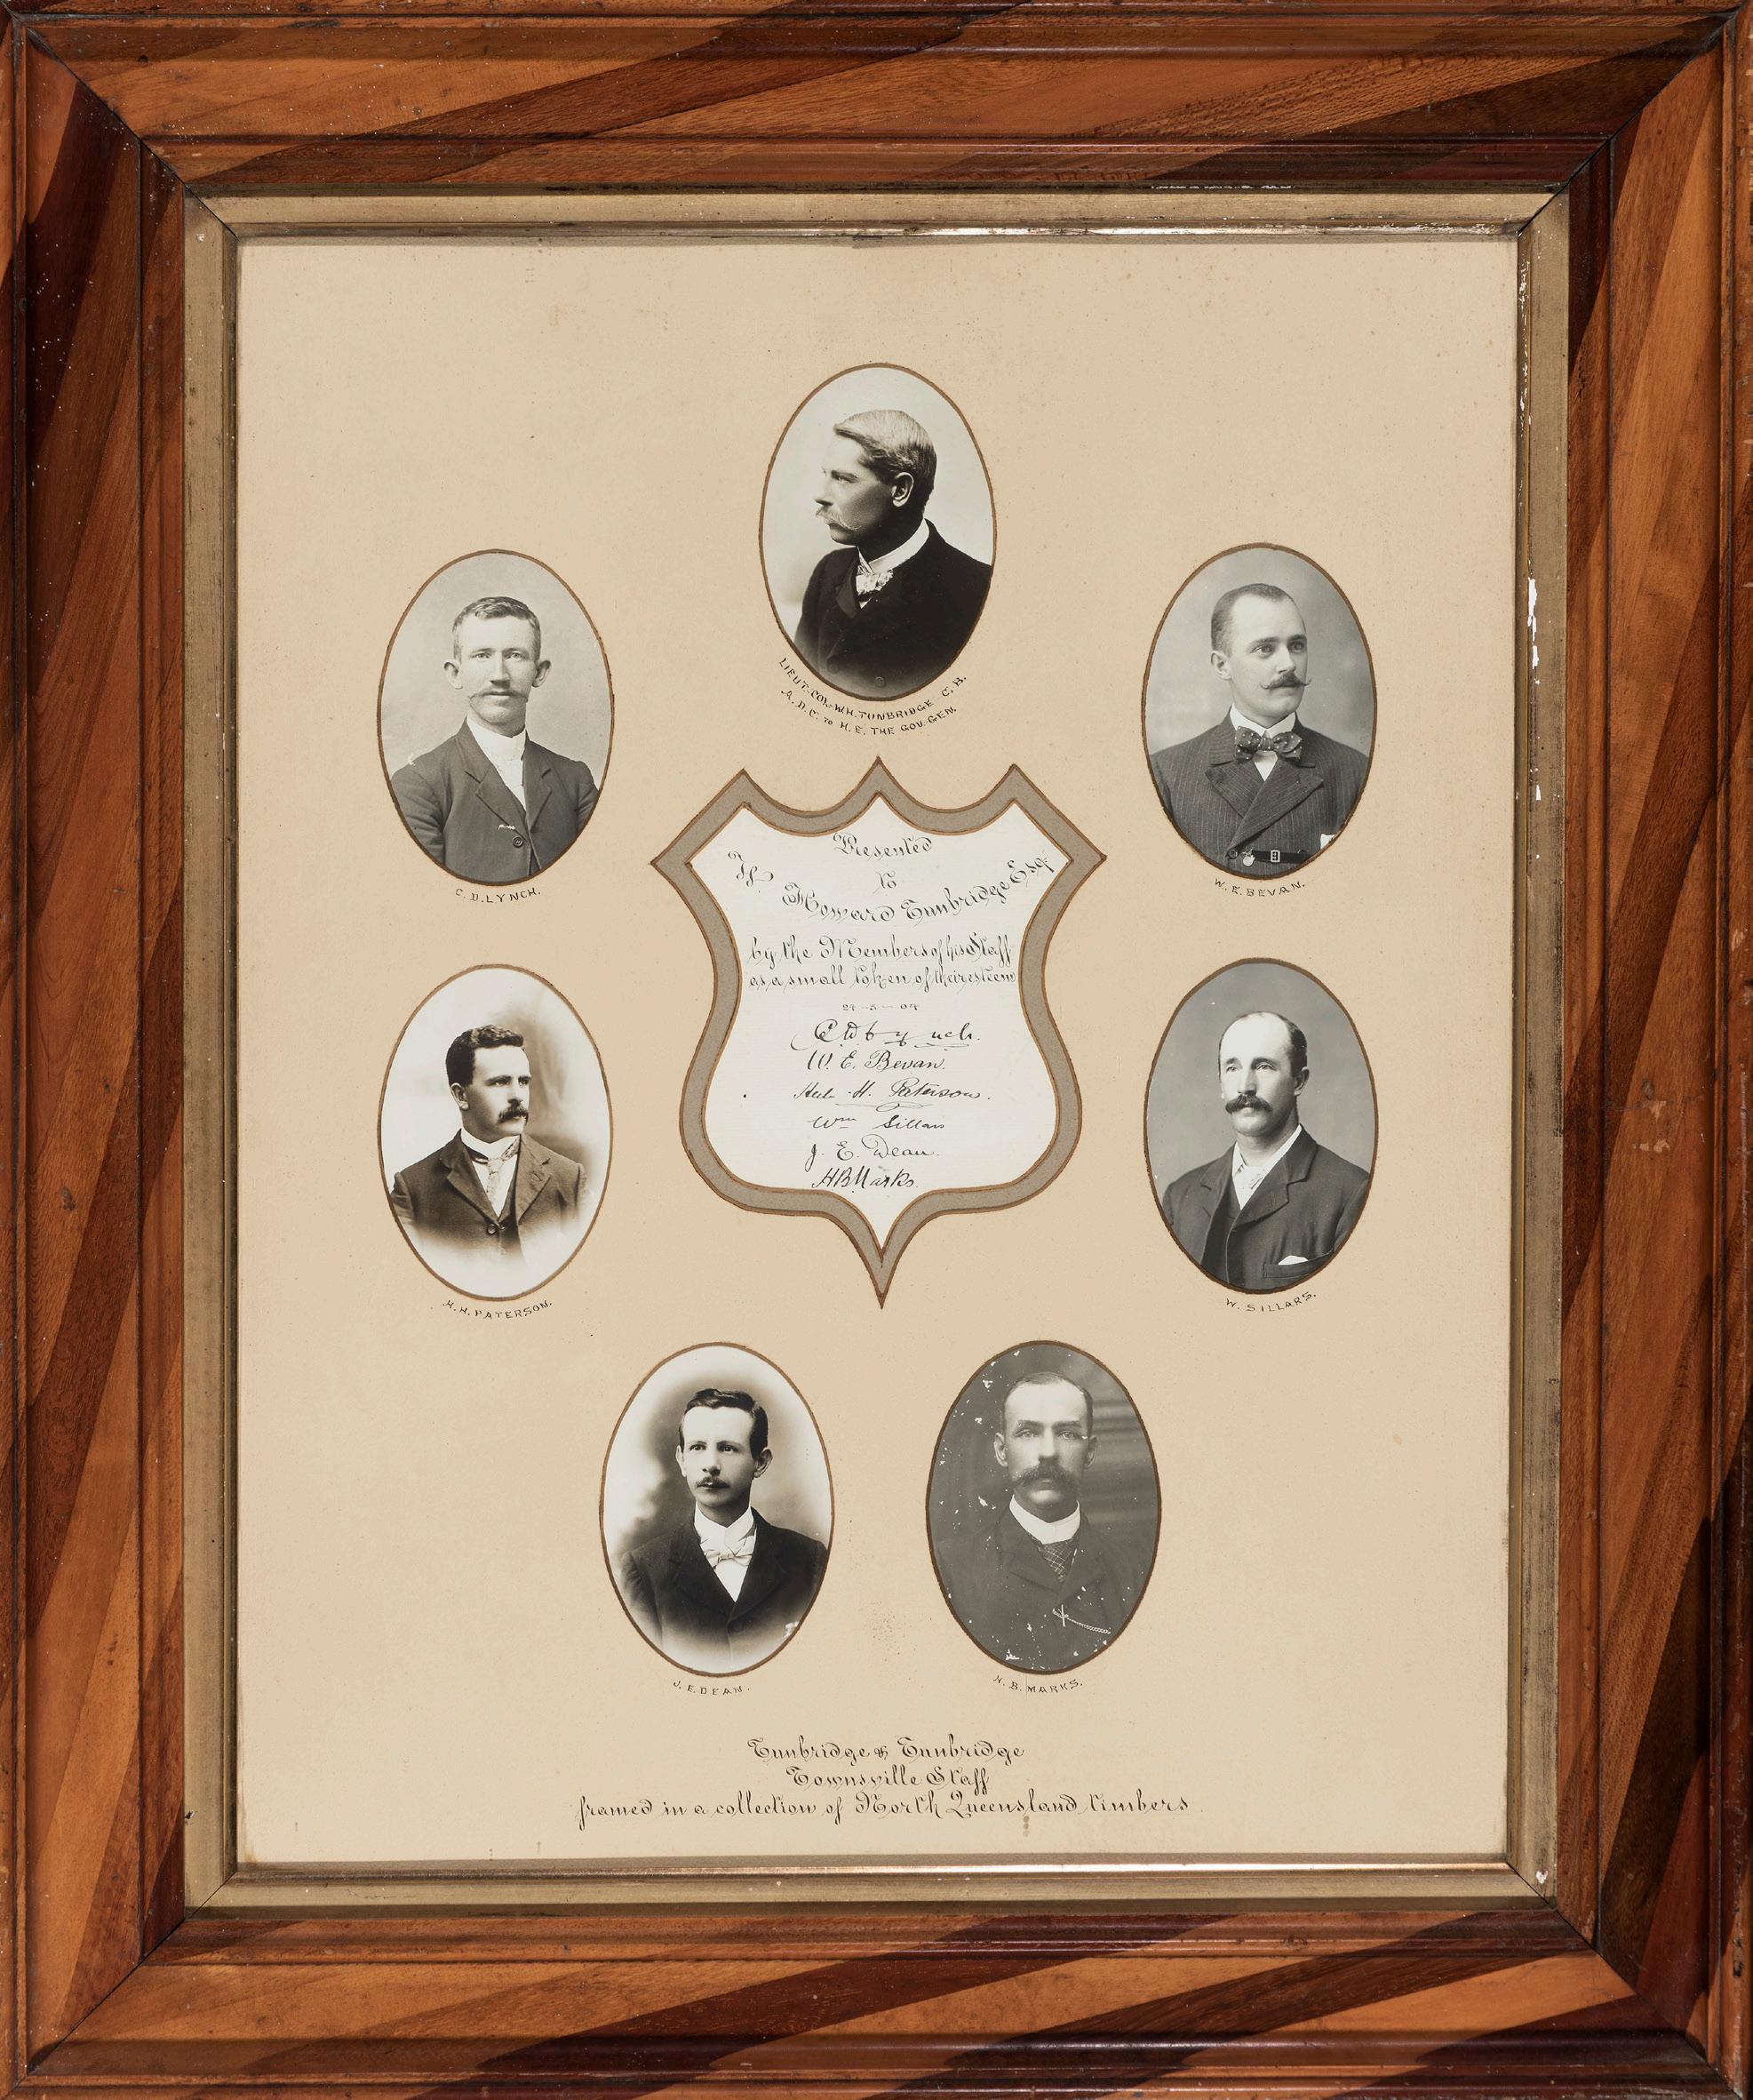 LIEUT-COL. W.H. TUNBRIDGE C. B.
A. D. C. TO H. E. THE GOV-GEN.
C. D. LYNCH.
W. E. BEVAN.
Presented
to
W. Howard Tunbridge Esq.
by the Members of his Staff
as a small token of their esteem
C D Lynch.
W. E. Bevan.
H. Paterson.
Wm Sillars
J. E. Dean.
H B Marks.
H. H. PATERSON.
W. SILLARS.
J. E. DEAN.
H. B. MARKS.
Tunbridge & Tunbridge
Townsville Staff
framed in a collection of North Queensland timbers